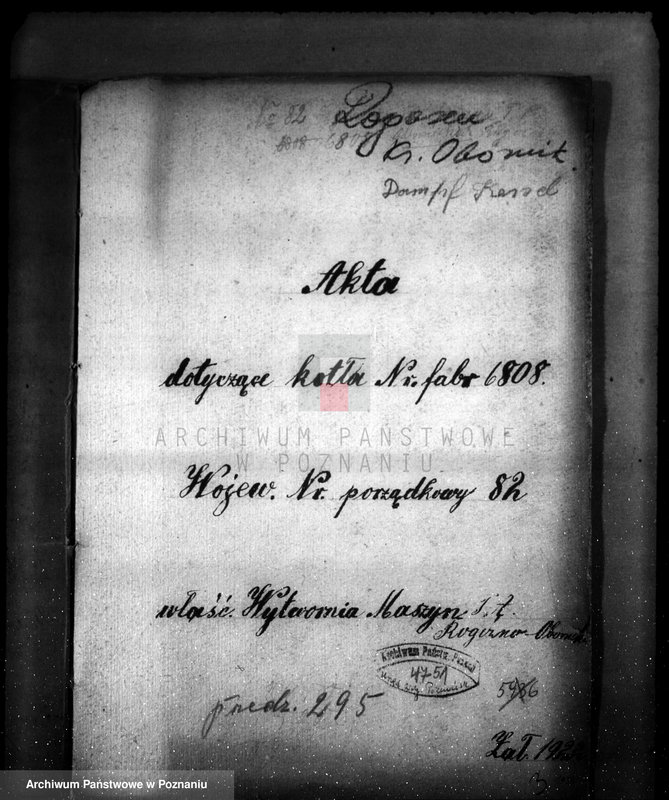 No 82
6808
Kr. Obornik.
Dampf Kessel
Akta
dotyczące kotła Nr. fabr 6808.
ARCHIWUM PAŃSTWOWE
W POZNANIU
Wojew. Nr. porządkowy 82
właść. Wytwornia Maszyn T. A
Rogozno-Obornik
Archiwum Państw. Poznań
4751
5986
przedz. 295
Zał. 192
Archiwum Państwowe w Poznaniu